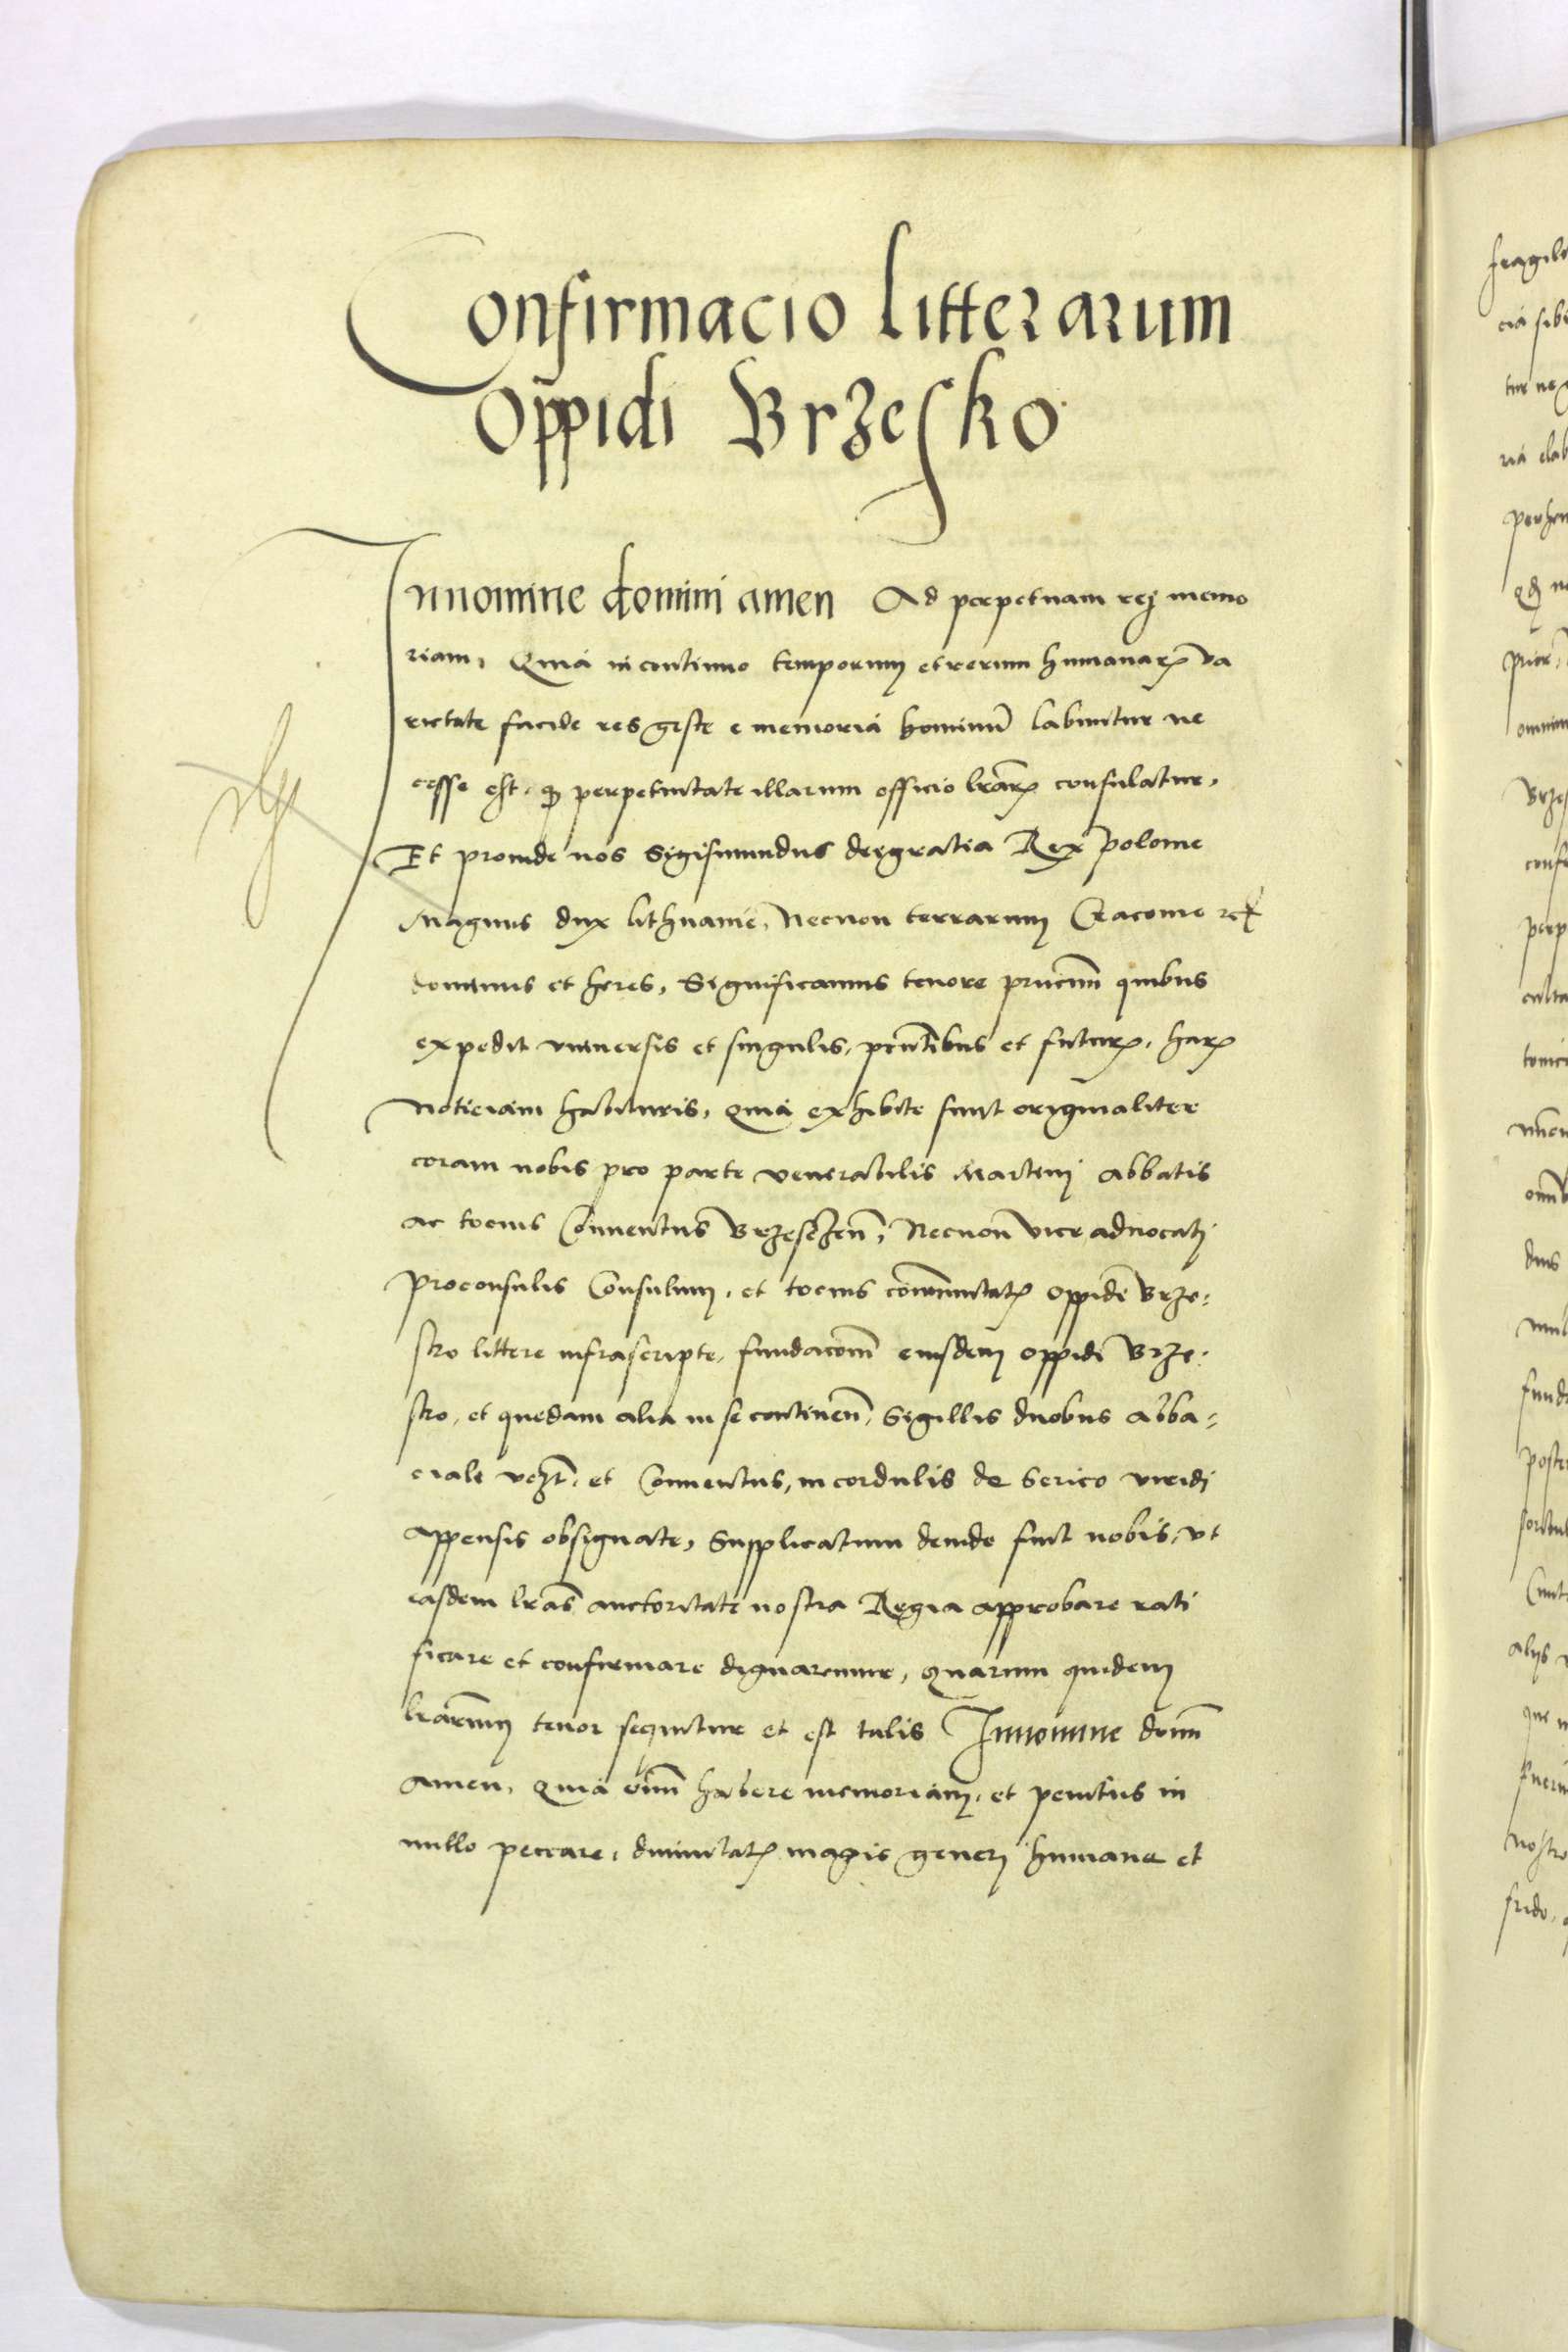 Confirmacio litterarum
oppidi Brzesko
Innomine domini amen Ad perpetuam rej memo
riam, Quia in continuo temporum et rerum humanarꝝ va
rietate facile res geste e memoria hominū labuntur ne
cesse est, ꝙ perpetuitate illarum officio lrarꝝ consulatur,
Et proinde nos Sigismundus dei gratia Rex polonie
Magnus dux lithuanie, Necnon terrarum Cracouie
dominus et heres, Significamus tenore pn̄cium quibus
expedit vniuersis et singulis, pn̄tibus et futurꝝ, harꝝ
noticiam habituris, quia exhibite sunt originaliter
coram nobis pro parte venerabilis Martini abbatis
ac tocius Conuentus Brzesczen̄, Necnon viceaduocati
proconsulis Consulum, et tocius cōmunitatꝫ oppidi Brze⸗
sko littere infrascripte, fundacōm̄ eiusdem oppidi Brze⸗
sko, et quedam alia in se continen̄, Sigillis duobus abba⸗
ciale et Conuentus, in cordulis de serico viridj
appensis obsignate, Supplicatum deinde fuit nobis, vt
easdem lrās auctoritate nostra Regia approbare rati
ficare et confirmare dignaremur, quarum quidem
lrārum tenor sequitur et est talis Innomine domī
amen, Quia om̄ habere memoriam, et penitus in
nullo peccare, diuinitatꝫ magis generj humane et
fragil
cia sib
ria elab
omnium
Brzes
perp
culta
dns
fund
poste
alijs
que
nostro